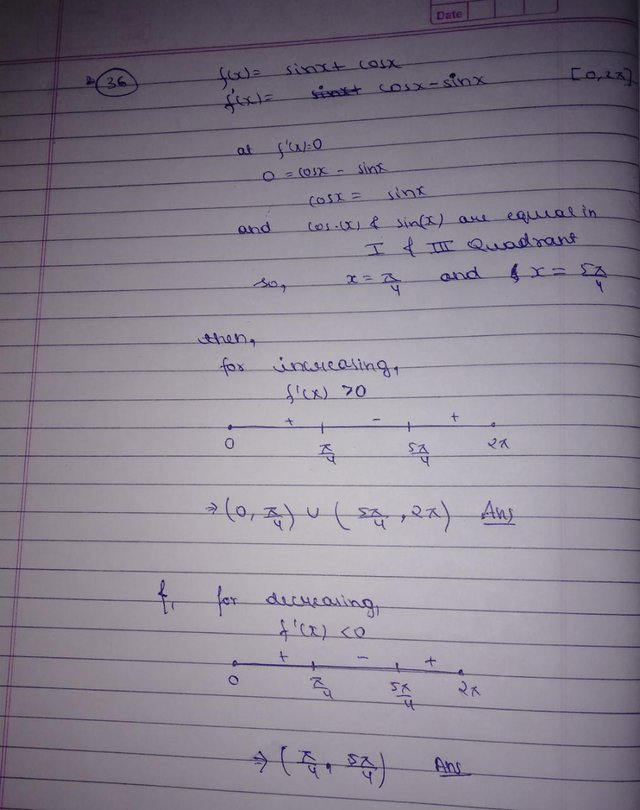 Date
36
f(x) = sinx + cosx
f'(x) = cosx - sinx [0, 2π]
at f'(x)=0
0 = cosx - sinx
cosx = sinx
and cos(x) & sin(x) are equal in
I & III Quadrant
so, x = π/4 and x = 5π/4
then,
for increasing,
f'(x) >0
+ - +
0 π/4 5π/4 2π
⇒ (0, π/4) ∪ (5π/4, 2π) Ans
f, for decreasing,
f'(x) <0
+ - +
0 π/4 5π/4 2π
⇒ (π/4, 5π/4) Ans